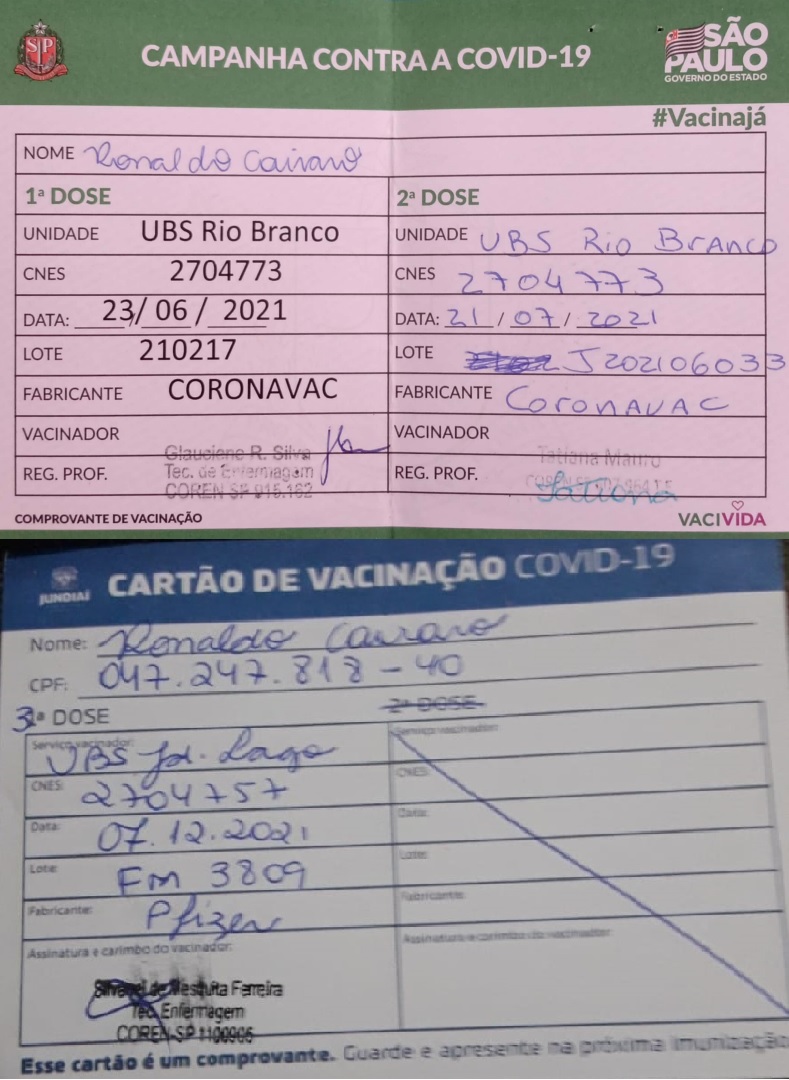 CAMPANHA CONTRA A COVID-19
SP
SÃO PAULO
GOVERNO DO ESTADO
#Vacinajá
NOME Ronaldo Cavaro
1ª DOSE 2ª DOSE
UNIDADE UBS Rio Branco UNIDADE UBS Rio Branco
CNES 2704773 CNES 2704773
DATA: 23/ 06 / 2021 DATA: 21 / 07 / 2021
LOTE 210217 LOTE J202106033
FABRICANTE CORONAVAC FABRICANTE CoronaVAC
VACINADOR VACINADOR
Glauciene R. Silva Tatiana
REG. PROF. Tec. de Enfermagem REG. PROF.
COREN SP 915.162 Tatiana
COMPROVANTE DE VACINAÇÃO VACIVIDA
JUNDIAÍ CARTÃO DE VACINAÇÃO COVID-19
Nome: Ronaldo Cavaro
CPF: 047.247.818-40
3ª DOSE 2ª DOSE
Serviço vacinador: UBS Jd. Lago Serviço vacinador:
CNES: 2704757 CNES:
Data: 07.12.2021 Data:
Lote: Fm 3809 Lote:
Fabricante: Pfizer Fabricante:
Assinatura e carimbo do vacinador: Assinatura e carimbo do vacinador:
de Mesquita Ferreira
Tec. Enfermagem
COREN-SP 1100906
Esse cartão é um comprovante. Guarde e apresente na próxima imunização